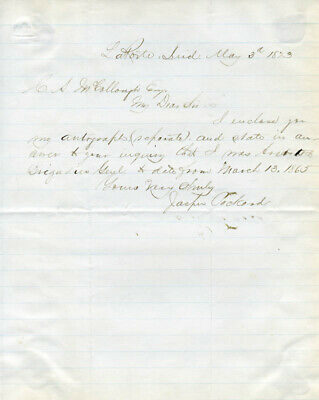 LaPorte, Ind May 3d 1873
C. A. McCollough Esqr
My Dear Sir
I enclose you
my autograph (separate) and state in an
swer to your inquiry that I was brevetted
Brigadier Genl to date from March 13, 1865
Yours Very Truly
Jasper Packard